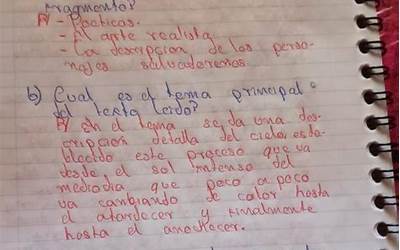 fragmento?
R/ - Poéticas.
- El arte realista
- La descripcion de los perso-
najes salvadoreños
b) Cual es el tema principal
del texto leido?
R/ En el tema se da una des-
cripcion detalla del cielo, esta-
bleciendo este proceso que va
desde el sol intenso del
mediodia que poco a poco
va cambiando de calor hasta
el atardecer y finalmente
hasta el anochecer.